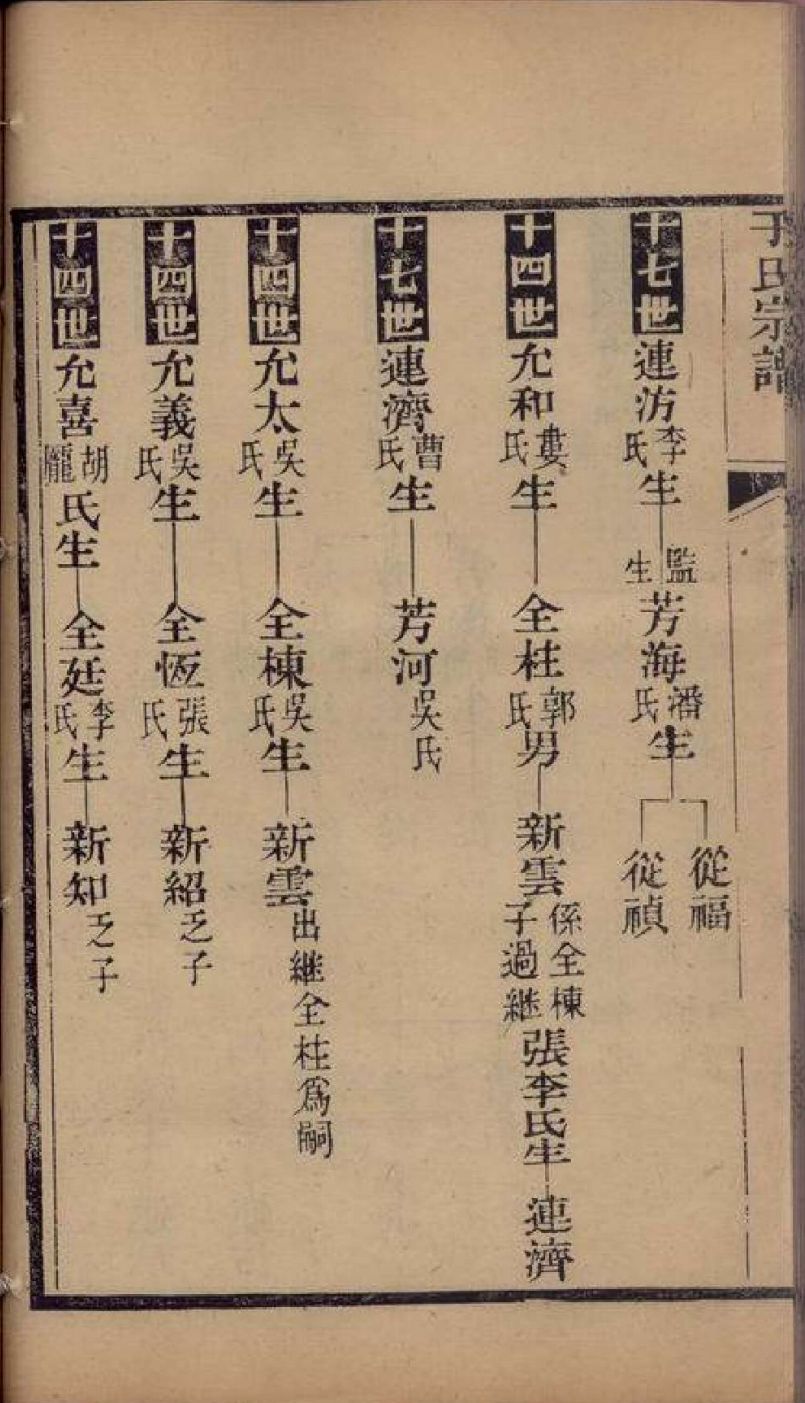 于氏宗譜
十七世連汸李氏生監生芳海潘氏生從福從禎
十四世允和婁氏生全柱郭氏男新雲係全棟子過継張李氏生連濟
十七世連濟曹氏生芳河吳氏
十四世允太吳氏生全棟吳氏生新雲出継全柱爲嗣
十四世允義吳氏生全恆張氏生新紹乏子
十四世允喜胡龐氏生全廷李氏生新知乏子